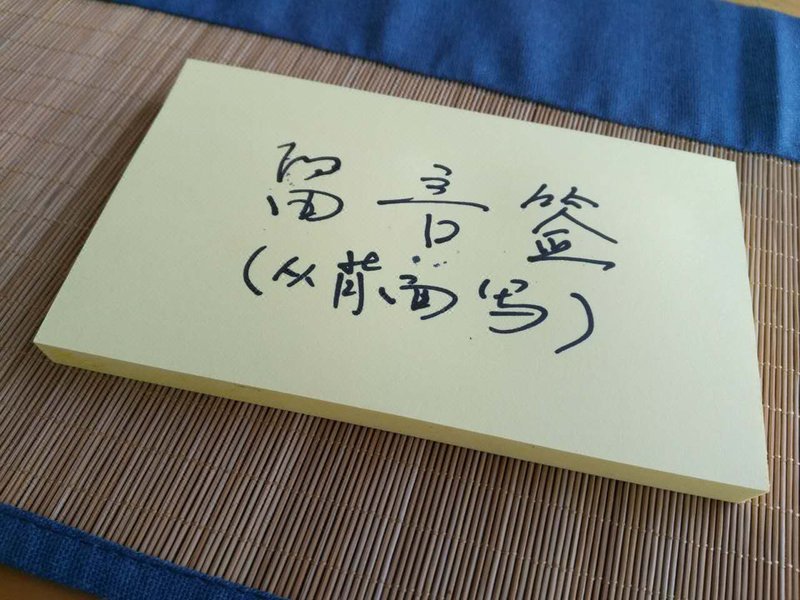 留言签
(从背面写)